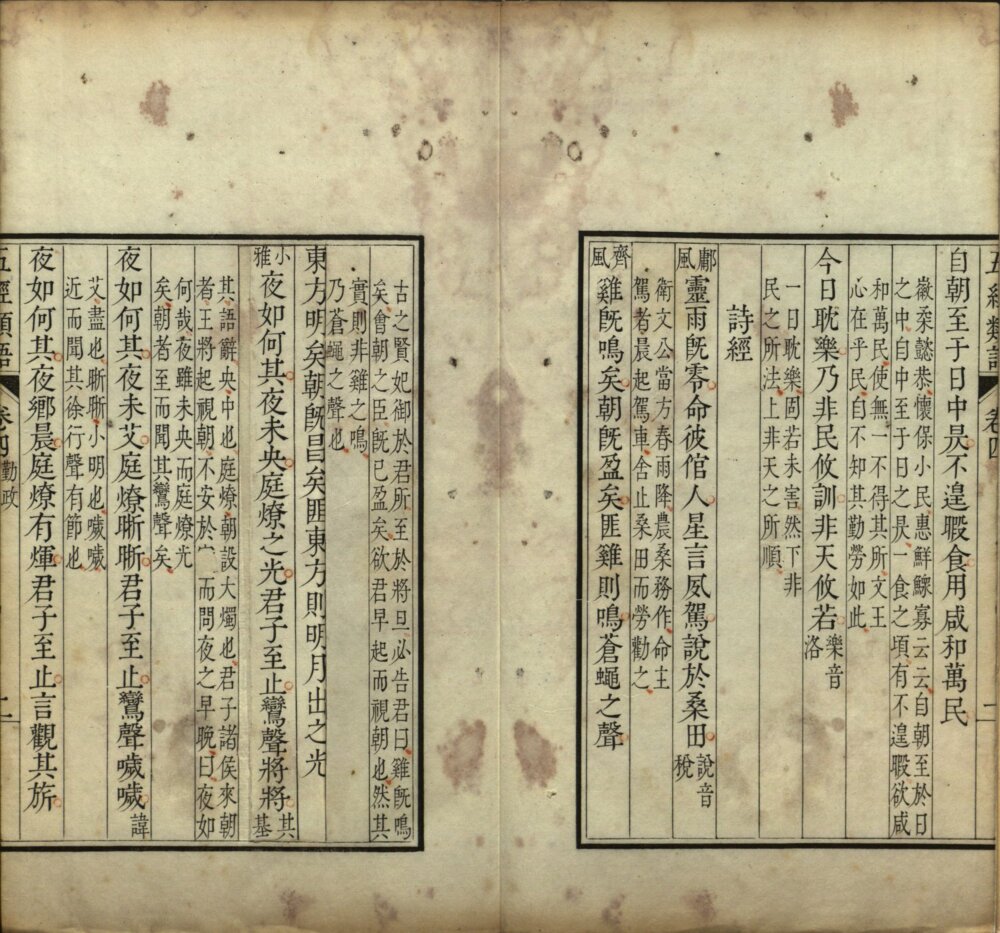 五經類語
卷四
二
自朝至于日中昃不遑暇食用咸和萬民
徽柔懿恭懷保小民惠鮮鰥寡云云自朝至於日
之中自中至于日之昃一食之頃有不遑暇欲咸
和萬民使無一不得其所文王
心在乎民自不知其勤勞如此
今日耽樂乃非民攸訓非天攸若樂音
洛
一日耽樂固若未害然下非
民之所法上非天之所順
詩經
鄘
風靈雨旣零命彼倌人星言夙駕說於桑田說音
稅
衛文公當方春雨降農桑務作命主
駕者晨起駕車舍止桑田而勞勸之
齊
風雞旣鳴矣朝旣盈矣匪雞則鳴蒼蠅之聲
古之賢妃御於君所至於將旦必告君曰雞旣鳴
矣會朝之臣旣已盈矣欲君早起而視朝也然其
實則非雞之鳴
乃蒼蠅之聲也
東方明矣朝旣昌矣匪東方則明月出之光
小
雅夜如何其夜未央庭燎之光君子至止鸞聲將將其
基
其語辭央中也庭燎朝設大燭也君子諸侯來朝
者王將起視朝不安於 而問夜之早晚曰夜如
何哉夜雖未央而庭燎光
矣朝者至而聞其鸞聲矣
夜如何其夜未艾庭燎晣晣君子至止鸞聲噦噦諱
艾盡也晣晣小明也噦噦
近而聞其徐行聲有節也
夜如何其夜鄉晨庭燎有煇君子至止言觀其旂
五經類語
卷四
勤政
二